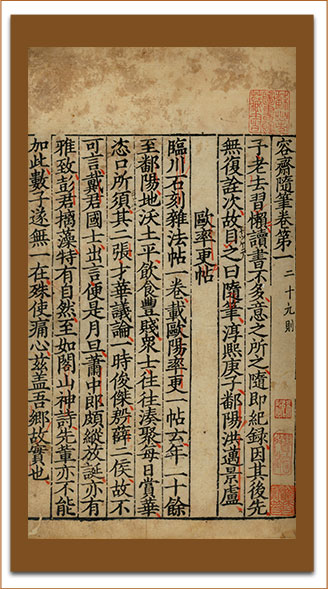 容齋隨筆卷第一 二十九則
予老去習懶讀書不多意之所之隨即紀錄因其後先
無復詮次故目之曰隨筆淳熙庚子鄱陽洪邁景盧
歐率更帖
臨川石刻雜法帖一卷載歐陽率更一帖云年二十餘
至鄱陽地沃土平飲食豐賤衆士往往湊聚每日賞華
恣口所須其二張才華議論一時俊傑殷薛二侯故不
可言戴君國士出言便是月旦蕭中郎頗縱放誕亦有
雅致彭君摛藻特有自然至如閣山神詩先輩亦不能
加此數子遂無一在殊使痛心兹盖吾鄉故實也